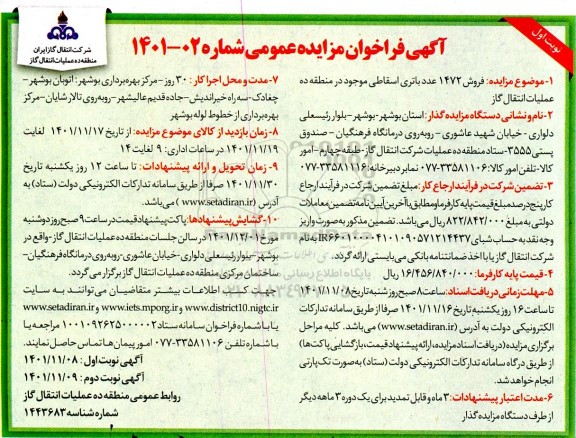 نوبت اول
آگهی فراخوان مزایده عمومی شماره ۰۲-۱۴۰۱
شرکت انتقال گاز ایران
منطقه ده عملیات انتقال گاز
۱- موضوع مزایده: فروش ۱۴۷۲ عدد باتری اسقاطی موجود در منطقه ده
عملیات انتقال گاز
۲- نام و نشانی دستگاه مزایده گذار: استان بوشهر-بوشهر-بلوار رئیسعلی
دلواری - خیابان شهید عاشوری - روبه‌روی درمانگاه فرهنگیان - صندوق
پستی ۳۵۵۵- ستاد منطقه ده عملیات شرکت انتقال گاز- طبقه چهارم- امور
کالا- تلفن امور کالا: ۳۳۵۸۱۱۰۶-۰۷۷ نمابر دبیرخانه: ۳۳۵۸۱۱۱۴-۰۷۷
۳- تضمین شرکت در فرآیند ارجاع کار: مبلغ تضمین شرکت در فرآیند ارجاع
کار پنج درصد مبلغ قیمت پایه کارفرما و مطابق با آخرین آیین نامه تضمین معاملات
دولتی به مبلغ ۸۲۲/۸۴۲/۰۰۰ ریال می‌باشد. تضمین مذکور به صورت واریز
وجه نقد به حساب شبای به نام
شرکت انتقال گاز یا با اخذ ضمانتنامه بانکی می‌بایستی ارائه گردد.
۴- قیمت پایه کارفرما: ۱۶/۴۵۶/۸۴۰/۰۰۰ ریال
۵- مهلت زمانی دریافت اسناد: ساعت ۸ صبح روز شنبه تاریخ ۱۴۰۱/۱۱/۰۸
تا ساعت ۱۶ روز یکشنبه تاریخ ۱۴۰۱/۱۱/۱۶ صرفا از طریق سامانه تدارکات
الکترونیکی دولت به آدرس (www.setadiran.ir) می‌باشد. کلیه مراحل
برگزاری مزایده (دریافت اسناد مزایده، ارائه پیشنهاد قیمت، بازگشایی پاکت‌ها)
از طریق درگاه سامانه تدارکات الکترونیکی دولت (ستاد) به صورت تک پارتی
انجام خواهد شد.
۶- مدت اعتبار پیشنهادات: ۳ ماه و قابل تمدید برای یک دوره ۳ ماهه دیگر
از طرف دستگاه مزایده گذار
۷- مدت و محل اجرا کار: ۳۰ روز - مرکز بهره‌برداری بوشهر: اتوبان بوشهر-
چغادک- سه راه خیراندیش- جاده قدیم عالیشهر- روبه‌روی تالار شایان- مرکز
بهره‌برداری از خطوط لوله بوشهر
۸- زمان بازدید از کالای موضوع مزایده: از تاریخ ۱۴۰۱/۱۱/۱۷ لغایت
۱۴۰۱/۱۱/۱۹ در ساعات اداری: ۹ لغایت ۱۴
۹- زمان تحویل و ارائه پیشنهادات: تا ساعت ۱۲ روز یکشنبه تاریخ
۱۴۰۱/۱۱/۳۰ صرفا از طریق سامانه تدارکات الکترونیکی دولت (ستاد) به
آدرس (www.setadiran.ir) می‌باشد.
۱۰- گشایش پیشنهادها: پاکت پیشنهاد قیمت در ساعت ۹ صبح روز دوشنبه
مورخ ۱۴۰۱/۱۲/۰۱ در سالن جلسات منطقه ده عملیات انتقال گاز- واقع در
بوشهر- بلوار رئیسعلی دلواری- خیابان عاشوری- روبه‌روی درمانگاه فرهنگیان-
ساختمان مرکزی منطقه ده عملیات انتقال گاز برگزار می‌گردد.
جهت کسب اطلاعات بیشتر متقاضیان می‌توانند به سایت
www.setadiran.ir و www.iets.mporg.ir و www.district10.nigtc.ir
یا با شماره فراخوان سامانه ستاد ۱۰۰۱۰۹۲۶۲۵۰۰۰۰۰۲ مراجعه یا
با شماره تلفن ۳۳۵۸۱۱۰۶-۰۷۷ امور پیمان‌ها تماس حاصل نمایند.
آگهی نوبت اول: ۱۴۰۱/۱۱/۰۸
آگهی نوبت دوم: ۱۴۰۱/۱۱/۰۹
روابط عمومی منطقه ده عملیات انتقال گاز
شماره شناسه ۱۴۴۳۶۸۳